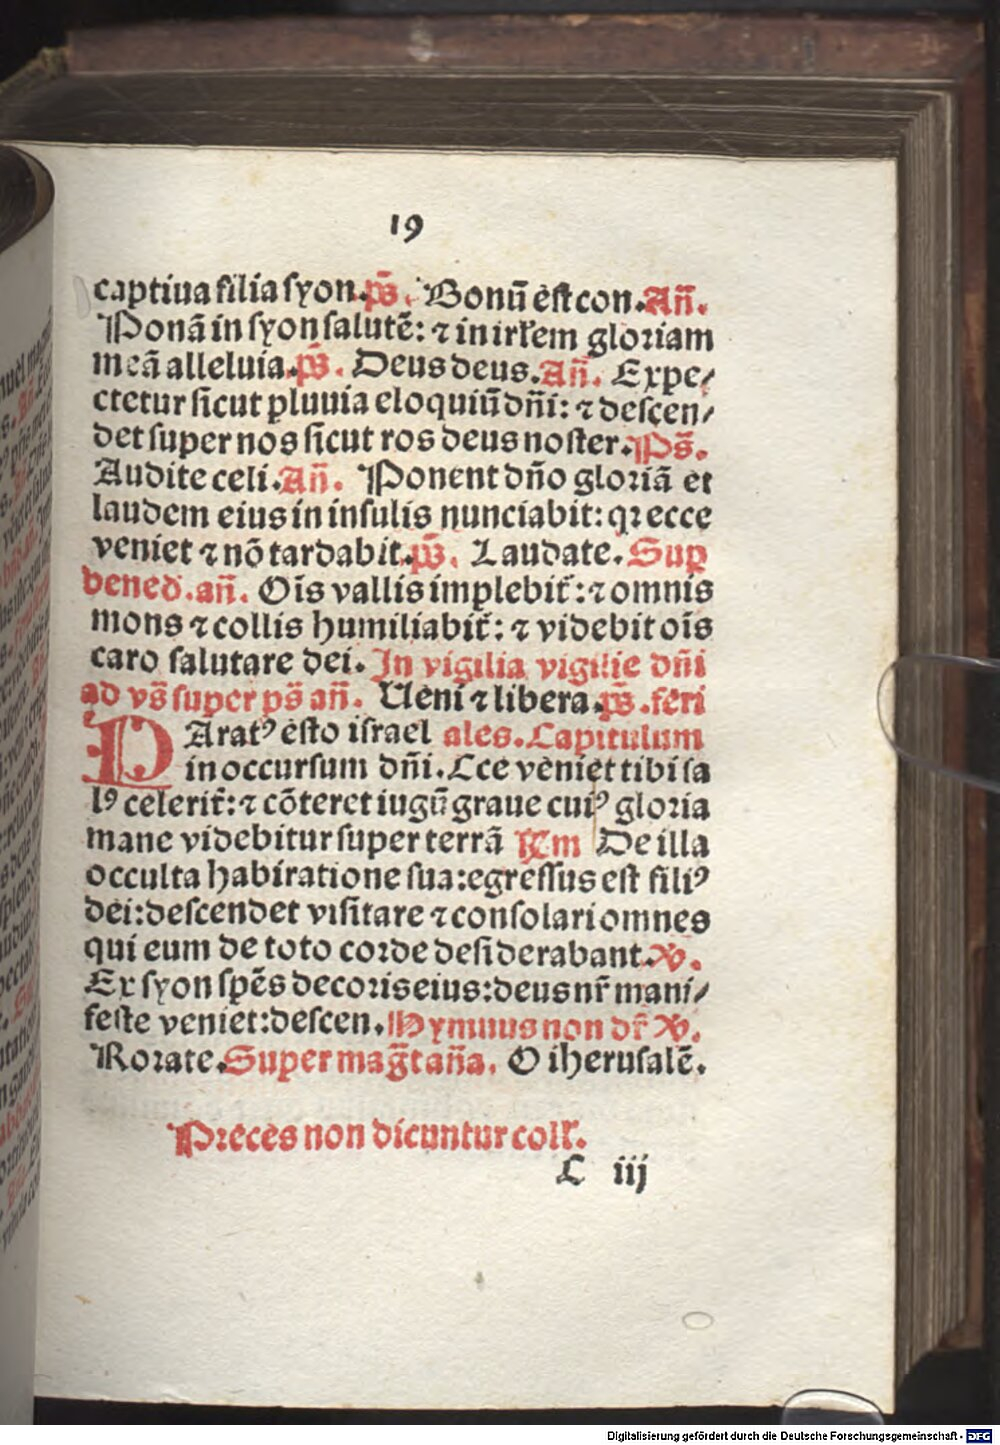 19
captiua filia syon. ps̄. Bonū est con. An̄.
Ponā in syon salutē: ⁊ in irłem gloriam
meā alleluia. ps̄. Deus deus. An̄. Expe⸗
ctetur sicut pluuia eloquiū dn̄i: ⁊ descen⸗
det super nos sicut ros deus noster. Ps̄.
Audite celi. An̄. Ponent dn̄o gloriā et
laudem eius in insulis nunciabit: qꝛ ecce
veniet ⁊ nō tardabit. ps̄. Laudate. Sup
bened. an̄. Oīs vallis implebit̄: ⁊ omnis
mons ⁊ collis humiliabit̄: ⁊ videbit oīs
caro salutare dei. In vigilia vigilie dn̄i
ad vs̄ super ps̄ an̄. Ueni ⁊ libera. ps̄. feri
PAratꝰ esto israel ales. Capitulum
in occursum dn̄i. Ecce veniet tibi sa
lꝰ celerit̄: ⁊ cōteret iugū graue cuiꝰ gloria
mane videbitur super terrā ℟m De illa
occulta habitatione sua: egressus est filiꝰ
dei: descendet visitare ⁊ consolari omnes
qui eum de toto corde desiderabant. ℣.
Ex syon spēs decoris eius: deus nr̄ mani⸗
feste veniet: descen. Hymnus non dr̄ ℣.
Rorate. Super mag̅t an̄a. O iherusalē.
Preces non dicuntur coll̄.
C iij
Digitalisierung gefördert durch die Deutsche Forschungsgemeinschaft - DFG